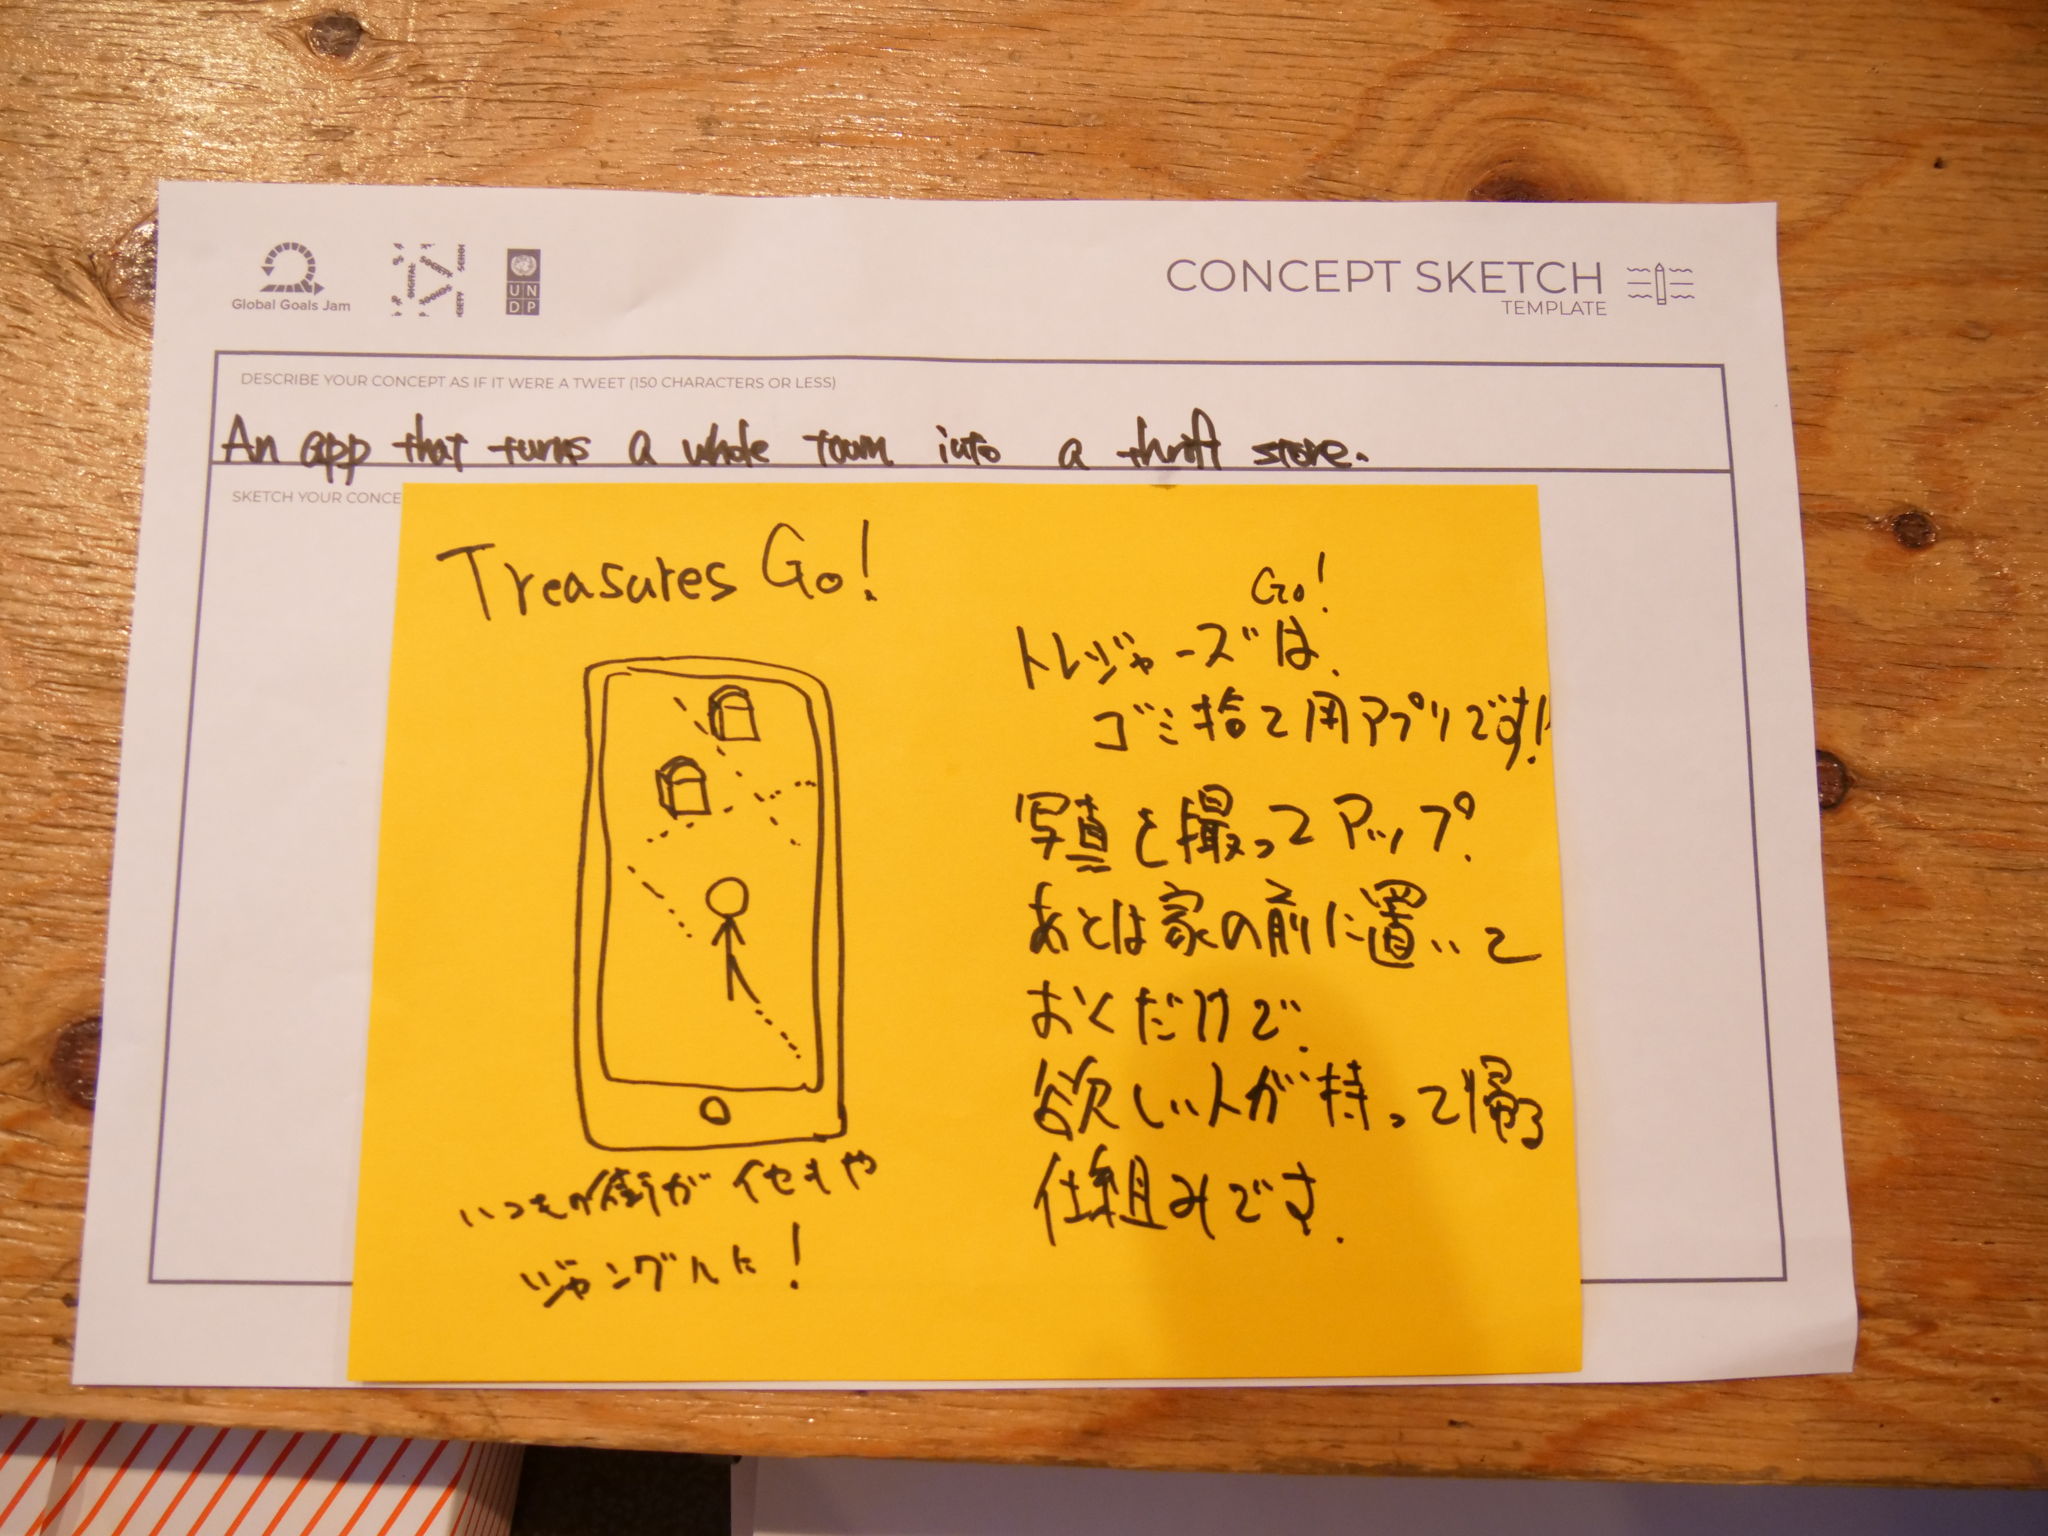 Global Goals Jam
DIGITAL SOCIETY SCHOOL
UN
DP
CONCEPT SKETCH
TEMPLATE
DESCRIBE YOUR CONCEPT AS IF IT WERE A TWEET (150 CHARACTERS OR LESS)
An app that turns a whole town into a thrift store.
SKETCH YOUR CONCE
Treasures Go!
いつもの街が
ジャングルに!
Go!
トレジャーズは、
ゴミ捨て用アプリです!
写真を撮ってアップ、
あとは家の前に置いて
おくだけで、
欲しい人が持って帰る
仕組みです.